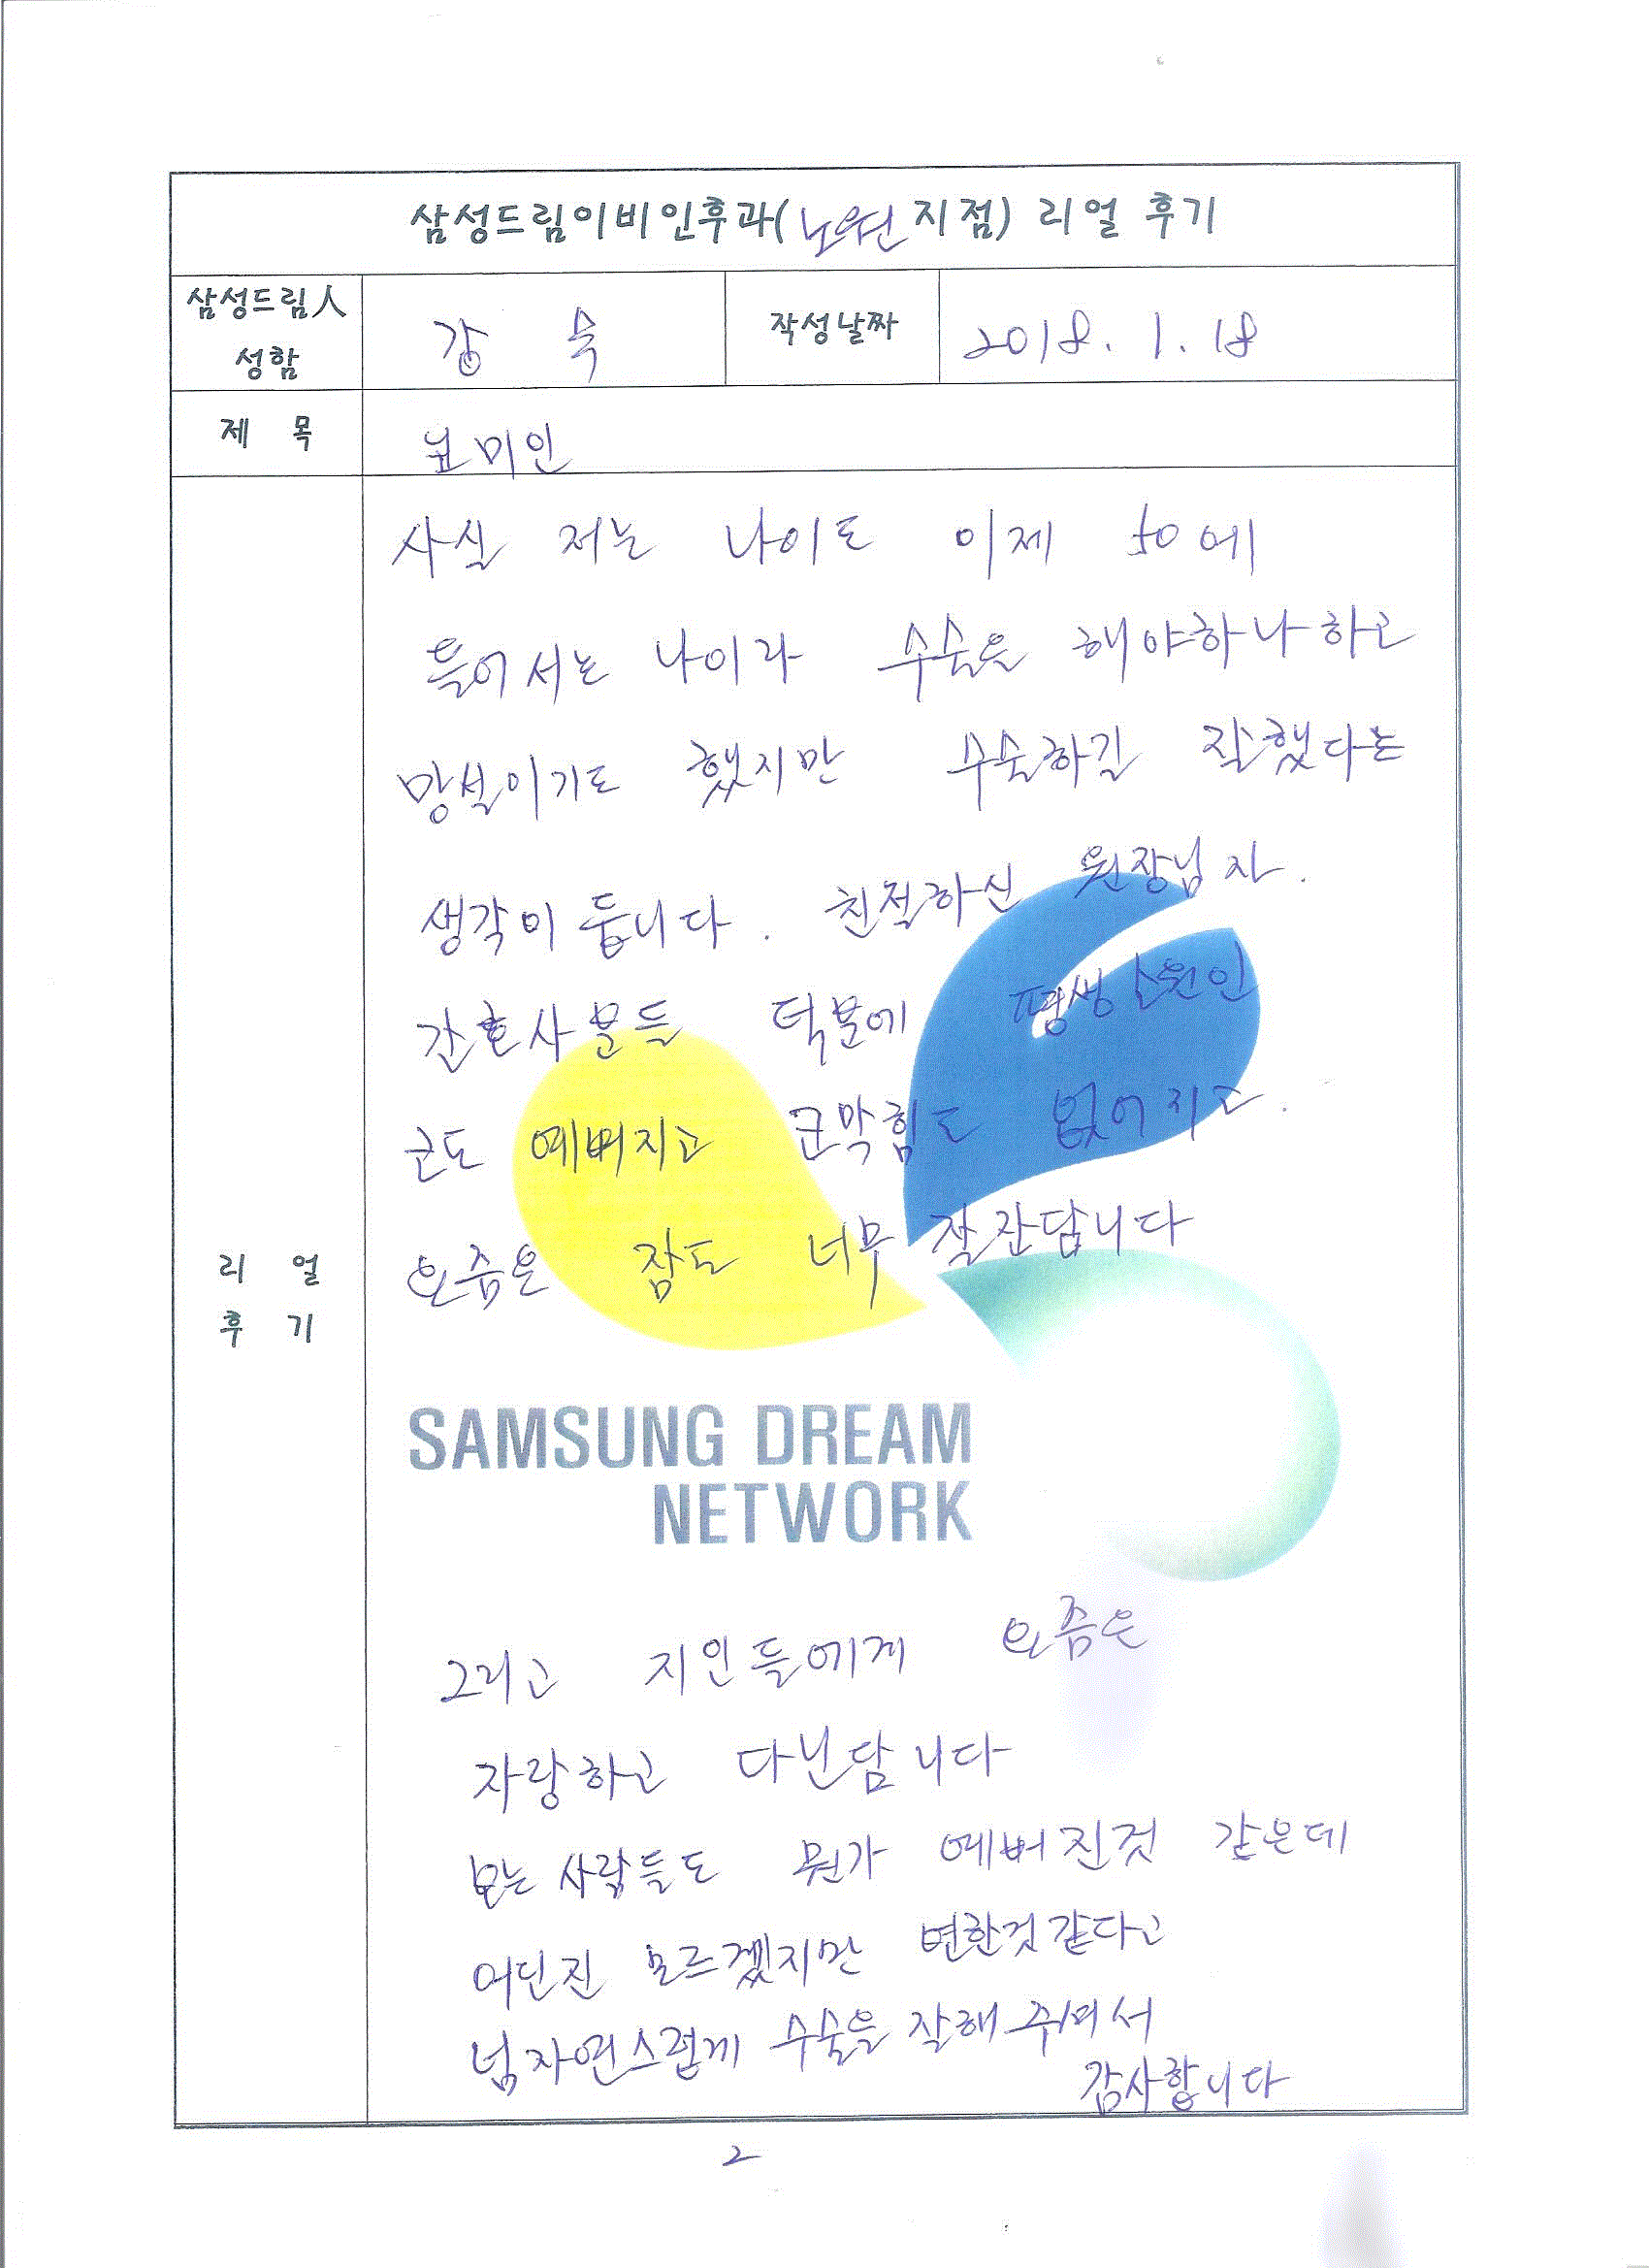 삼성드림이비인후과(노원지점) 리얼 후기
삼성드림人
성함
강 숙
작성날짜
2018. 1. 18
제 목
뇨미인
사실 저는 나이도 이제 50에
들어서는 나이라 수술을 해야하나하고
망설이기도 했지만 수술하길 잘했다는
생각이 듭니다. 친절하신 원장님과.
간호사분들 덕분에 평생소원인
코도 예뻐지고 코막힘도 없어지고.
요즘은 잠도 너무 잘잔답니다
리 얼
후 기
SAMSUNG DREAM
NETWORK
그리고 지인들에게 요즘은
자랑하고 다닌답니다
보는 사람들도 뭔가 예뻐진것 같은데
어딘진 모르겠지만 변한것같다고
넘자연스럽게 수술을 잘해주셔서
감사합니다
2